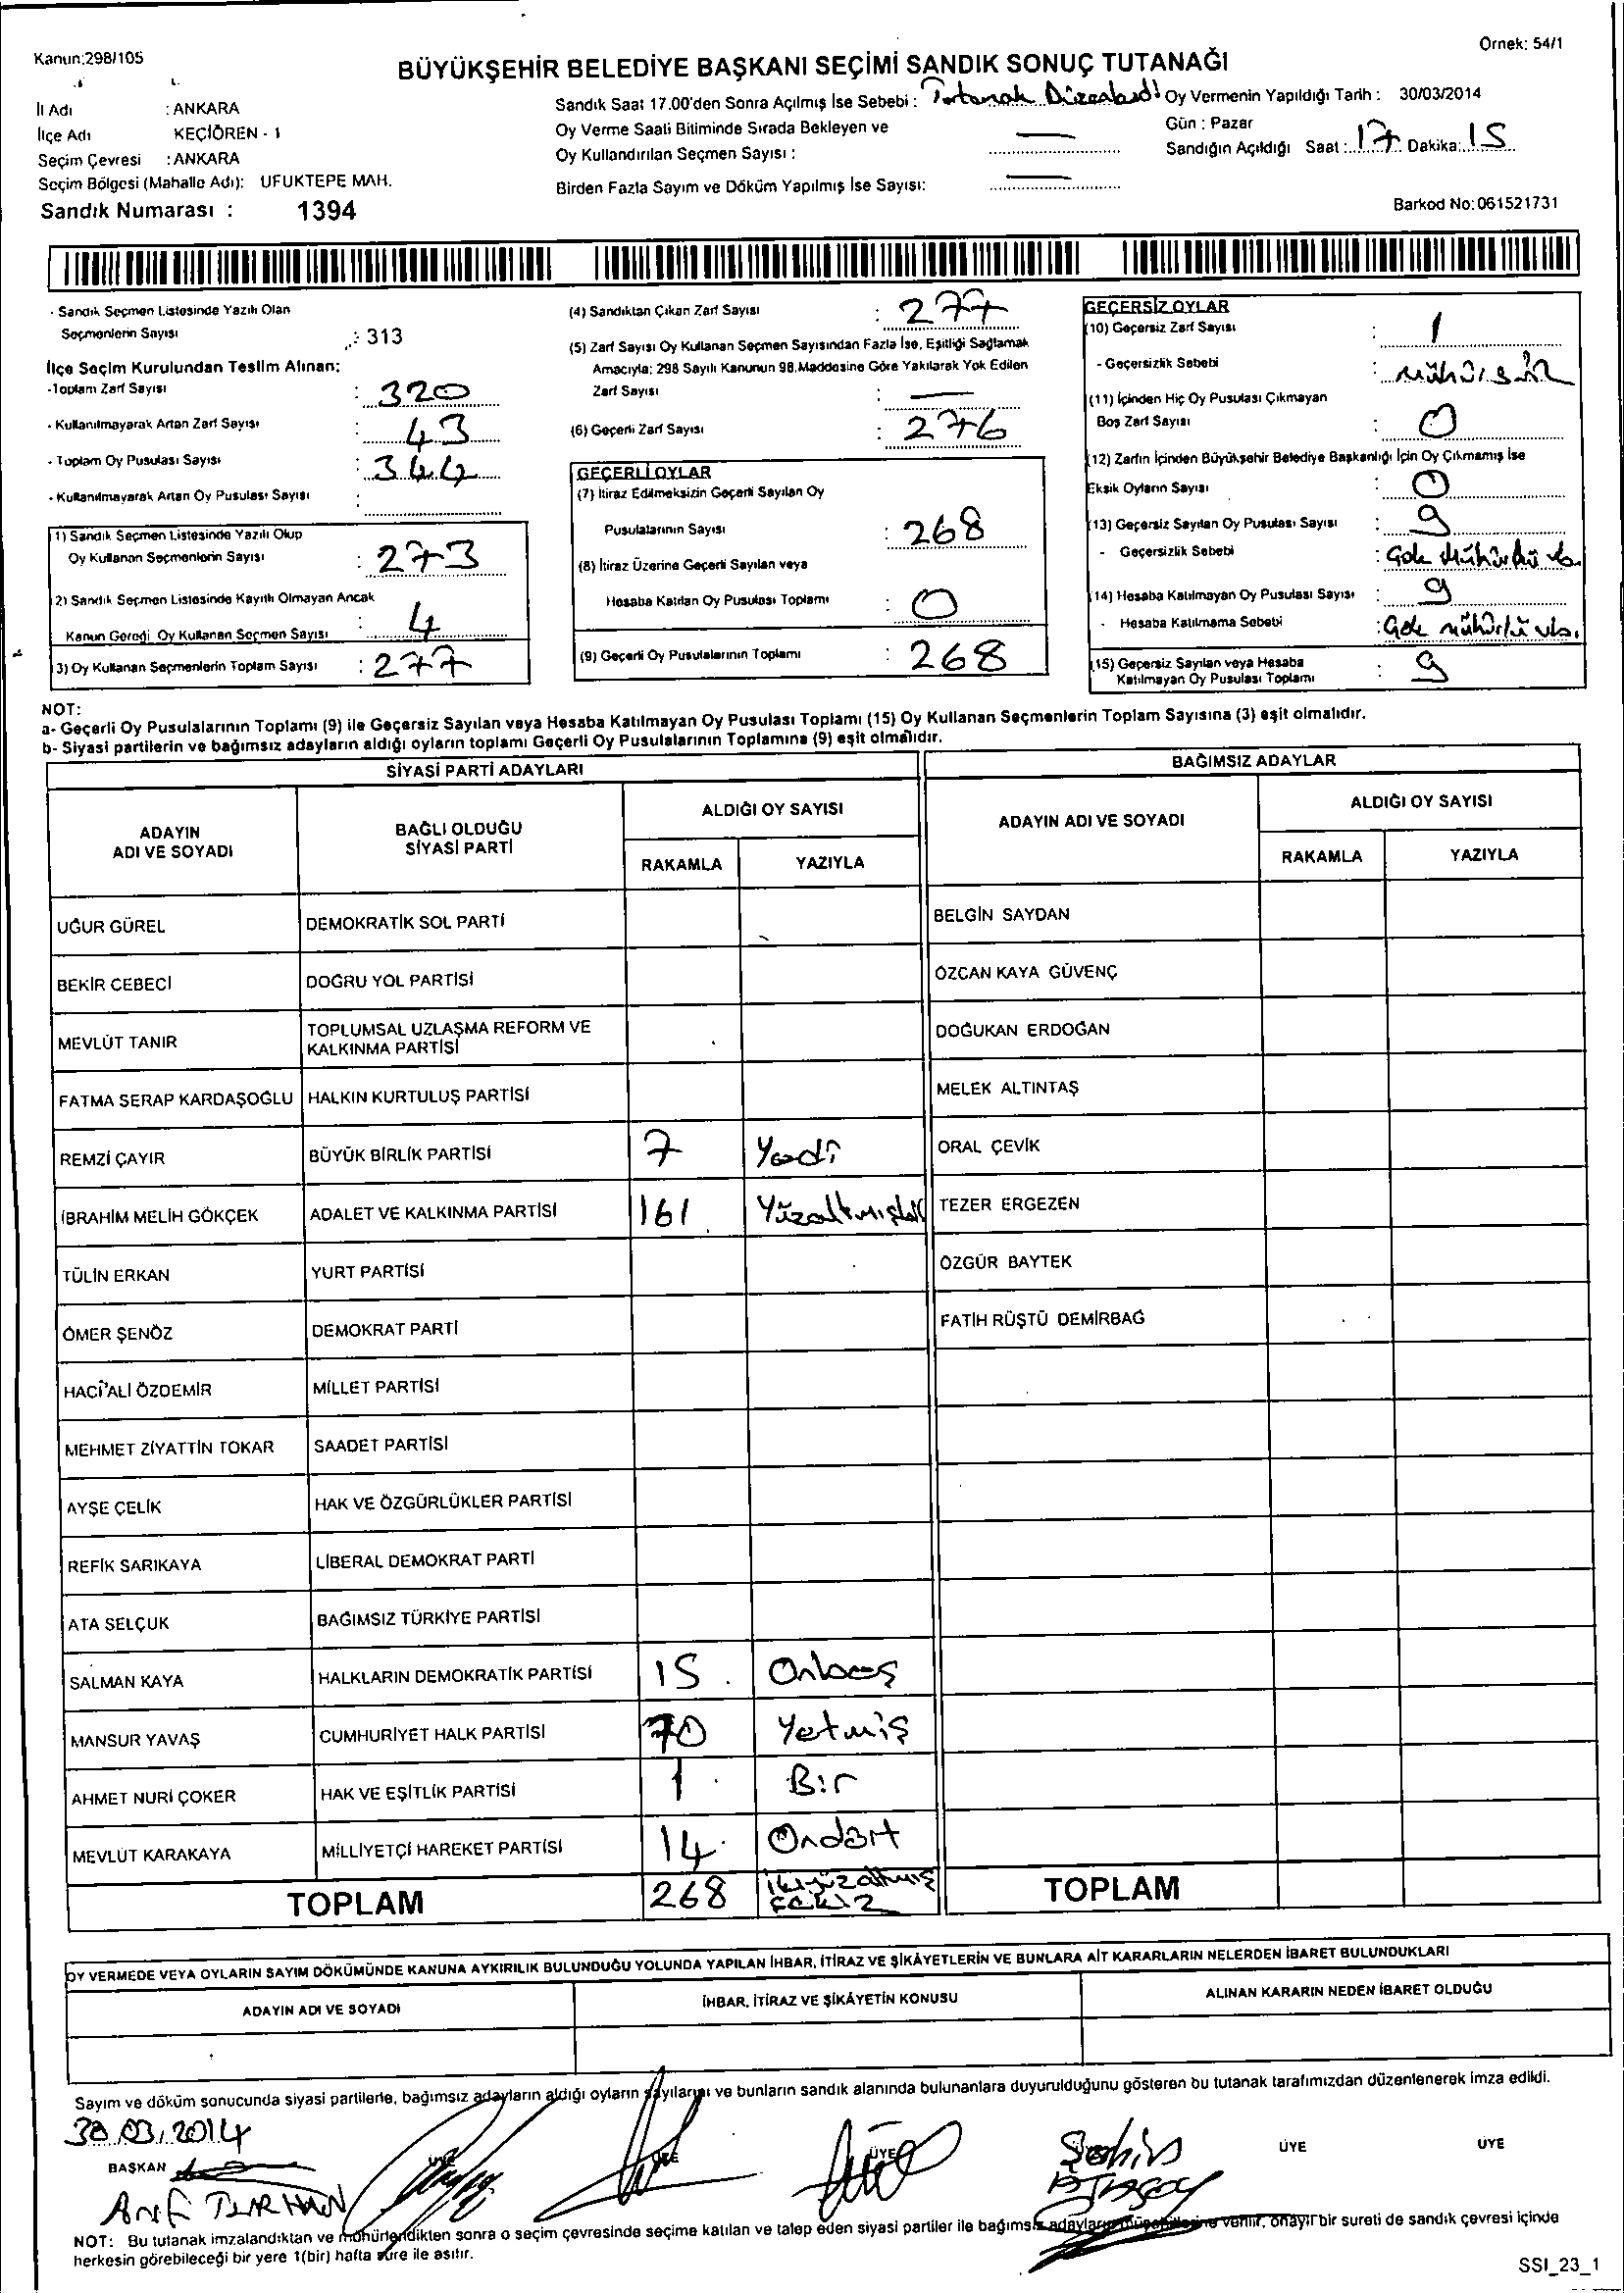 Kanun:298/105
Örnek: 54/1
BÜYÜKŞEHİR BELEDİYE BAŞKANI SEÇİMİ SANDIK SONUÇ TUTANAĞI
İl Adı : ANKARA
İlçe Adı KEÇİÖREN - 1
Seçim Çevresi : ANKARA
Seçim Bölgesi (Mahalle Adı): UFUKTEPE MAH.
Sandık Numarası : 1394
Sandık Saat 17.00'den Sonra Açılmış İse Sebebi : Tutanak
Oy Verme Saati Bitiminde Sırada Bekleyen ve
Oy Kullandırılan Seçmen Sayısı : —
Birden Fazla Sayım ve Döküm Yapılmış İse Sayısı: —
Oy Vermenin Yapıldığı Tarih : 30/03/2014
Gün : Pazar
Sandığın Açıldığı Saat : 17 Dakika: 15
Barkod No: 061521731
- Sandık Seçmen Listesinde Yazılı Olan
Seçmenlerin Sayısı : 313
İlçe Seçim Kurulundan Teslim Alınan:
-Toplam Zarf Sayısı : 320
- Kullanılmayarak Artan Zarf Sayısı : 43
- Toplam Oy Pusulası Sayısı : 344
- Kullanılmayarak Artan Oy Pusulası Sayısı :
1) Sandık Seçmen Listesinde Yazılı Olup
Oy Kullanan Seçmenlerin Sayısı : 273
2) Sandık Seçmen Listesinde Kayıtlı Olmayan Ancak
Kanun Gereği Oy Kullanan Seçmen Sayısı : 4
3) Oy Kullanan Seçmenlerin Toplam Sayısı : 277
(4) Sandıktan Çıkan Zarf Sayısı : 277
(5) Zarf Sayısı Oy Kullanan Seçmen Sayısından Fazla İse, Eşitliği Sağlamak
Amacıyla; 298 Sayılı Kanunun 98.Maddesine Göre Yakılarak Yok Edilen
Zarf Sayısı : —
(6) Geçerli Zarf Sayısı : 276
GEÇERLİ OYLAR
(7) İtiraz Edilmeksizin Geçerli Sayılan Oy
Pusulalarının Sayısı : 268
(8) İtiraz Üzerine Geçerli Sayılan veya
Hesaba Katılan Oy Pusulası Toplamı : 0
(9) Geçerli Oy Pusulalarının Toplamı : 268
GEÇERSİZ OYLAR
(10) Geçersiz Zarf Sayısı : 1
- Geçersizlik Sebebi : mühürsüz
(11) İçinden Hiç Oy Pusulası Çıkmayan
Boş Zarf Sayısı : 0
(12) Zarfın İçinden Büyükşehir Belediye Başkanlığı İçin Oy Çıkmamış İse
Eksik Oyların Sayısı : 0
(13) Geçersiz Sayılan Oy Pusulası Sayısı : 9
- Geçersizlik Sebebi : Çok Mühürlü vb.
(14) Hesaba Katılmayan Oy Pusulası Sayısı : 9
- Hesaba Katılmama Sebebi : Çok mühürlü vb.
(15) Geçersiz Sayılan veya Hesaba
Katılmayan Oy Pusulası Toplamı : 9
NOT:
a- Geçerli Oy Pusulalarının Toplamı (9) ile Geçersiz Sayılan veya Hesaba Katılmayan Oy Pusulası Toplamı (15) Oy Kullanan Seçmenlerin Toplam Sayısına (3) eşit olmalıdır.
b- Siyasi partilerin ve bağımsız adayların aldığı oyların toplamı Geçerli Oy Pusulalarının Toplamına (9) eşit olmalıdır.
SİYASİ PARTİ ADAYLARI BAĞIMSIZ ADAYLAR
ADAYIN ADI VE SOYADI BAĞLI OLDUĞU SİYASİ PARTİ ALDIĞI OY SAYISI ADAYIN ADI VE SOYADI ALDIĞI OY SAYISI
RAKAMLA YAZIYLA RAKAMLA YAZIYLA
UĞUR GÜREL DEMOKRATİK SOL PARTİ BELGİN SAYDAN
BEKİR CEBECİ DOĞRU YOL PARTİSİ ÖZCAN KAYA GÜVENÇ
MEVLÜT TANIR TOPLUMSAL UZLAŞMA REFORM VE KALKINMA PARTİSİ DOĞUKAN ERDOĞAN
FATMA SERAP KARDAŞOĞLU HALKIN KURTULUŞ PARTİSİ MELEK ALTINTAŞ
REMZİ ÇAYIR BÜYÜK BİRLİK PARTİSİ 7 Yedi ORAL ÇEVİK
İBRAHİM MELİH GÖKÇEK ADALET VE KALKINMA PARTİSİ 161 Yüzaltmışbir TEZER ERGEZEN
TÜLİN ERKAN YURT PARTİSİ ÖZGÜR BAYTEK
ÖMER ŞENÖZ DEMOKRAT PARTİ FATİH RÜŞTÜ DEMİRBAĞ
HACİ ALİ ÖZDEMİR MİLLET PARTİSİ
MEHMET ZİYATTİN TOKAR SAADET PARTİSİ
AYŞE ÇELİK HAK VE ÖZGÜRLÜKLER PARTİSİ
REFİK SARIKAYA LİBERAL DEMOKRAT PARTİ
ATA SELÇUK BAĞIMSIZ TÜRKİYE PARTİSİ
SALMAN KAYA HALKLARIN DEMOKRATİK PARTİSİ 15 Onbeş
MANSUR YAVAŞ CUMHURİYET HALK PARTİSİ 70 Yetmiş
AHMET NURİ ÇOKER HAK VE EŞİTLİK PARTİSİ 1 Bir
MEVLÜT KARAKAYA MİLLİYETÇİ HAREKET PARTİSİ 14 Ondört
TOPLAM 268 ikiyüzaltmış sekiz TOPLAM
OY VERMEDE VEYA OYLARIN SAYIM DÖKÜMÜNDE KANUNA AYKIRILIK BULUNDUĞU YOLUNDA YAPILAN İHBAR, İTİRAZ VE ŞİKÂYETLERİN VE BUNLARA AİT KARARLARIN NELERDEN İBARET BULUNDUKLARI
ADAYIN ADI VE SOYADI İHBAR, İTİRAZ VE ŞİKÂYETİN KONUSU ALINAN KARARIN NEDEN İBARET OLDUĞU
Sayım ve döküm sonucunda siyasi partilerle, bağımsız adayların aldığı oyların sayılarını ve bunların sandık alanında bulunanlara duyurulduğunu gösteren bu tutanak tarafımızdan düzenlenerek imza edildi.
30.03.2014
BAŞKAN ÜYE ÜYE ÜYE Şahin ÜYE ÜYE
Arif TURHAN
NOT: Bu tutanak imzalandıktan ve mühürlendikten sonra o seçim çevresinde seçime katılan ve talep eden siyasi partiler ile bağımsız adayların müşahitlerine verilir, onaylı bir sureti de sandık çevresi içinde
herkesin görebileceği bir yere 1(bir) hafta süre ile asılır.
SSI_23_1